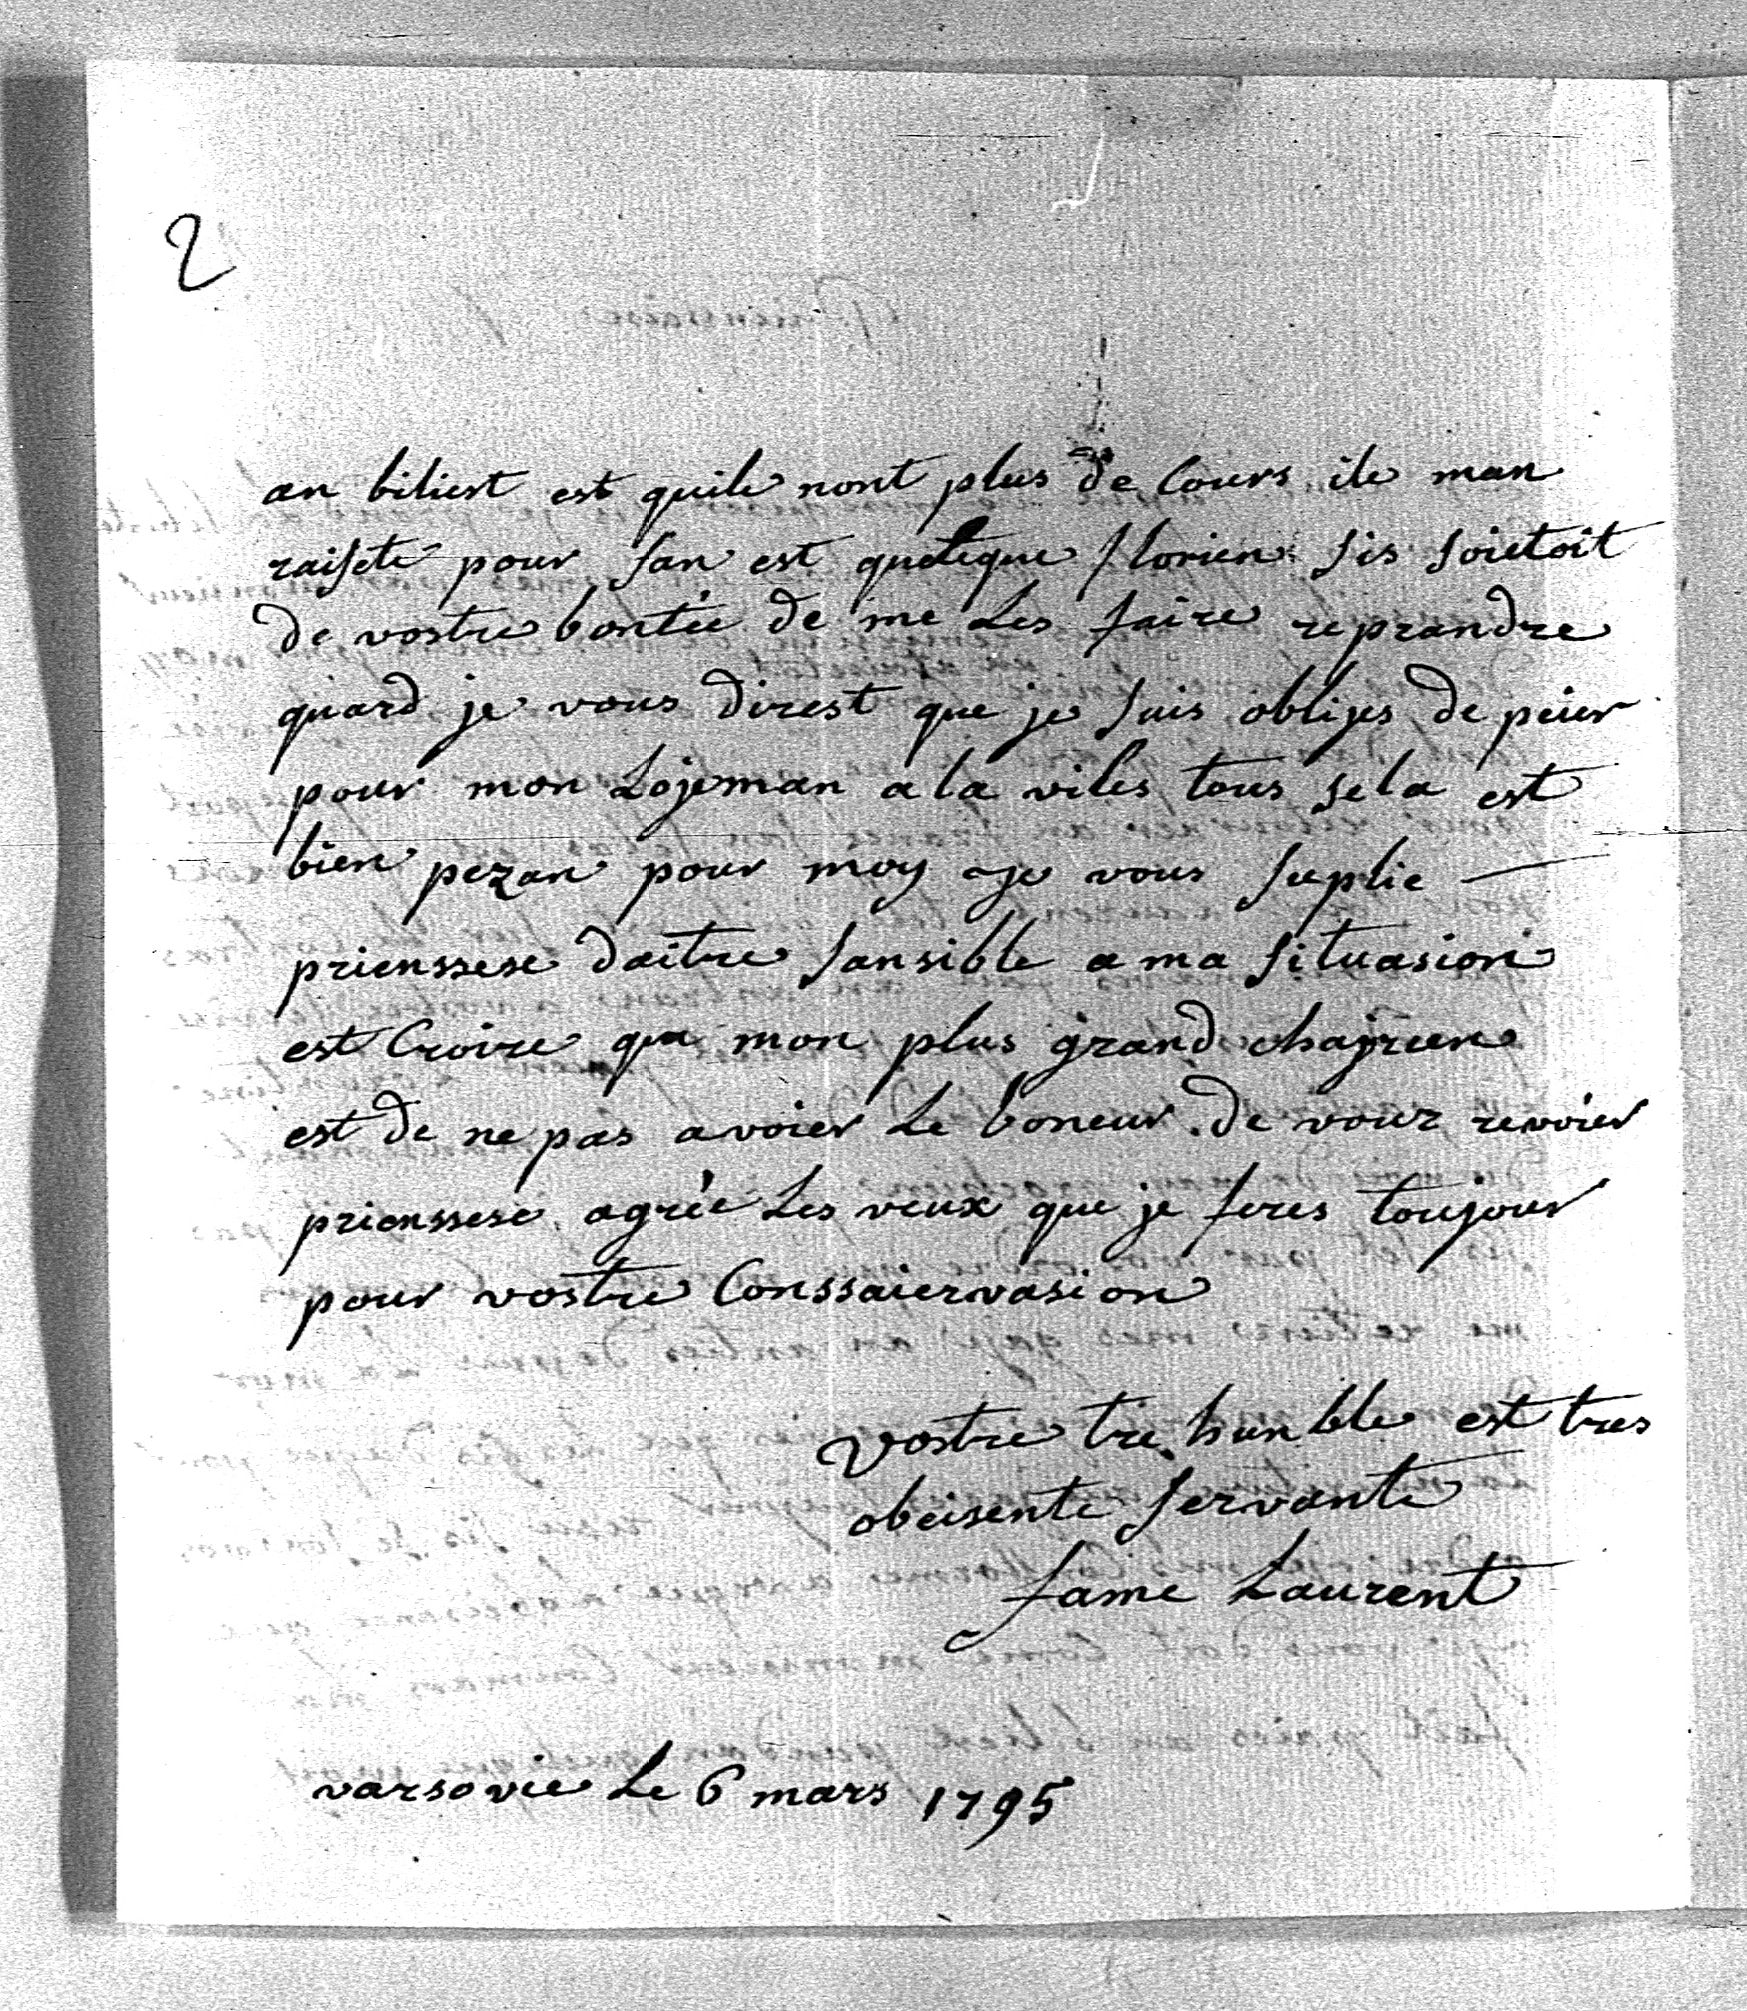 2
an biliest est quile nont plus de Cours ile man
raisete pour san est quelque florien sis soietoit
de vostre bontée de me Les faire reprandre
quard je vous direst que je suis oblijes de peier
pour mon Lojeman a la viles tous sela est
bien pezan pour moy je vous suplie
prienssese daitre sansible a ma situasion
est Croire que mon plus grand chagrien
est de ne pas avoier Le boneur de vour revoier
prienssese agrée Les veux que je feres toujour
pour vostre Conssaiervasion
vostre tre humble est tres
obeisente servante
fame Laurent
varsovie Le 6 mars 1795